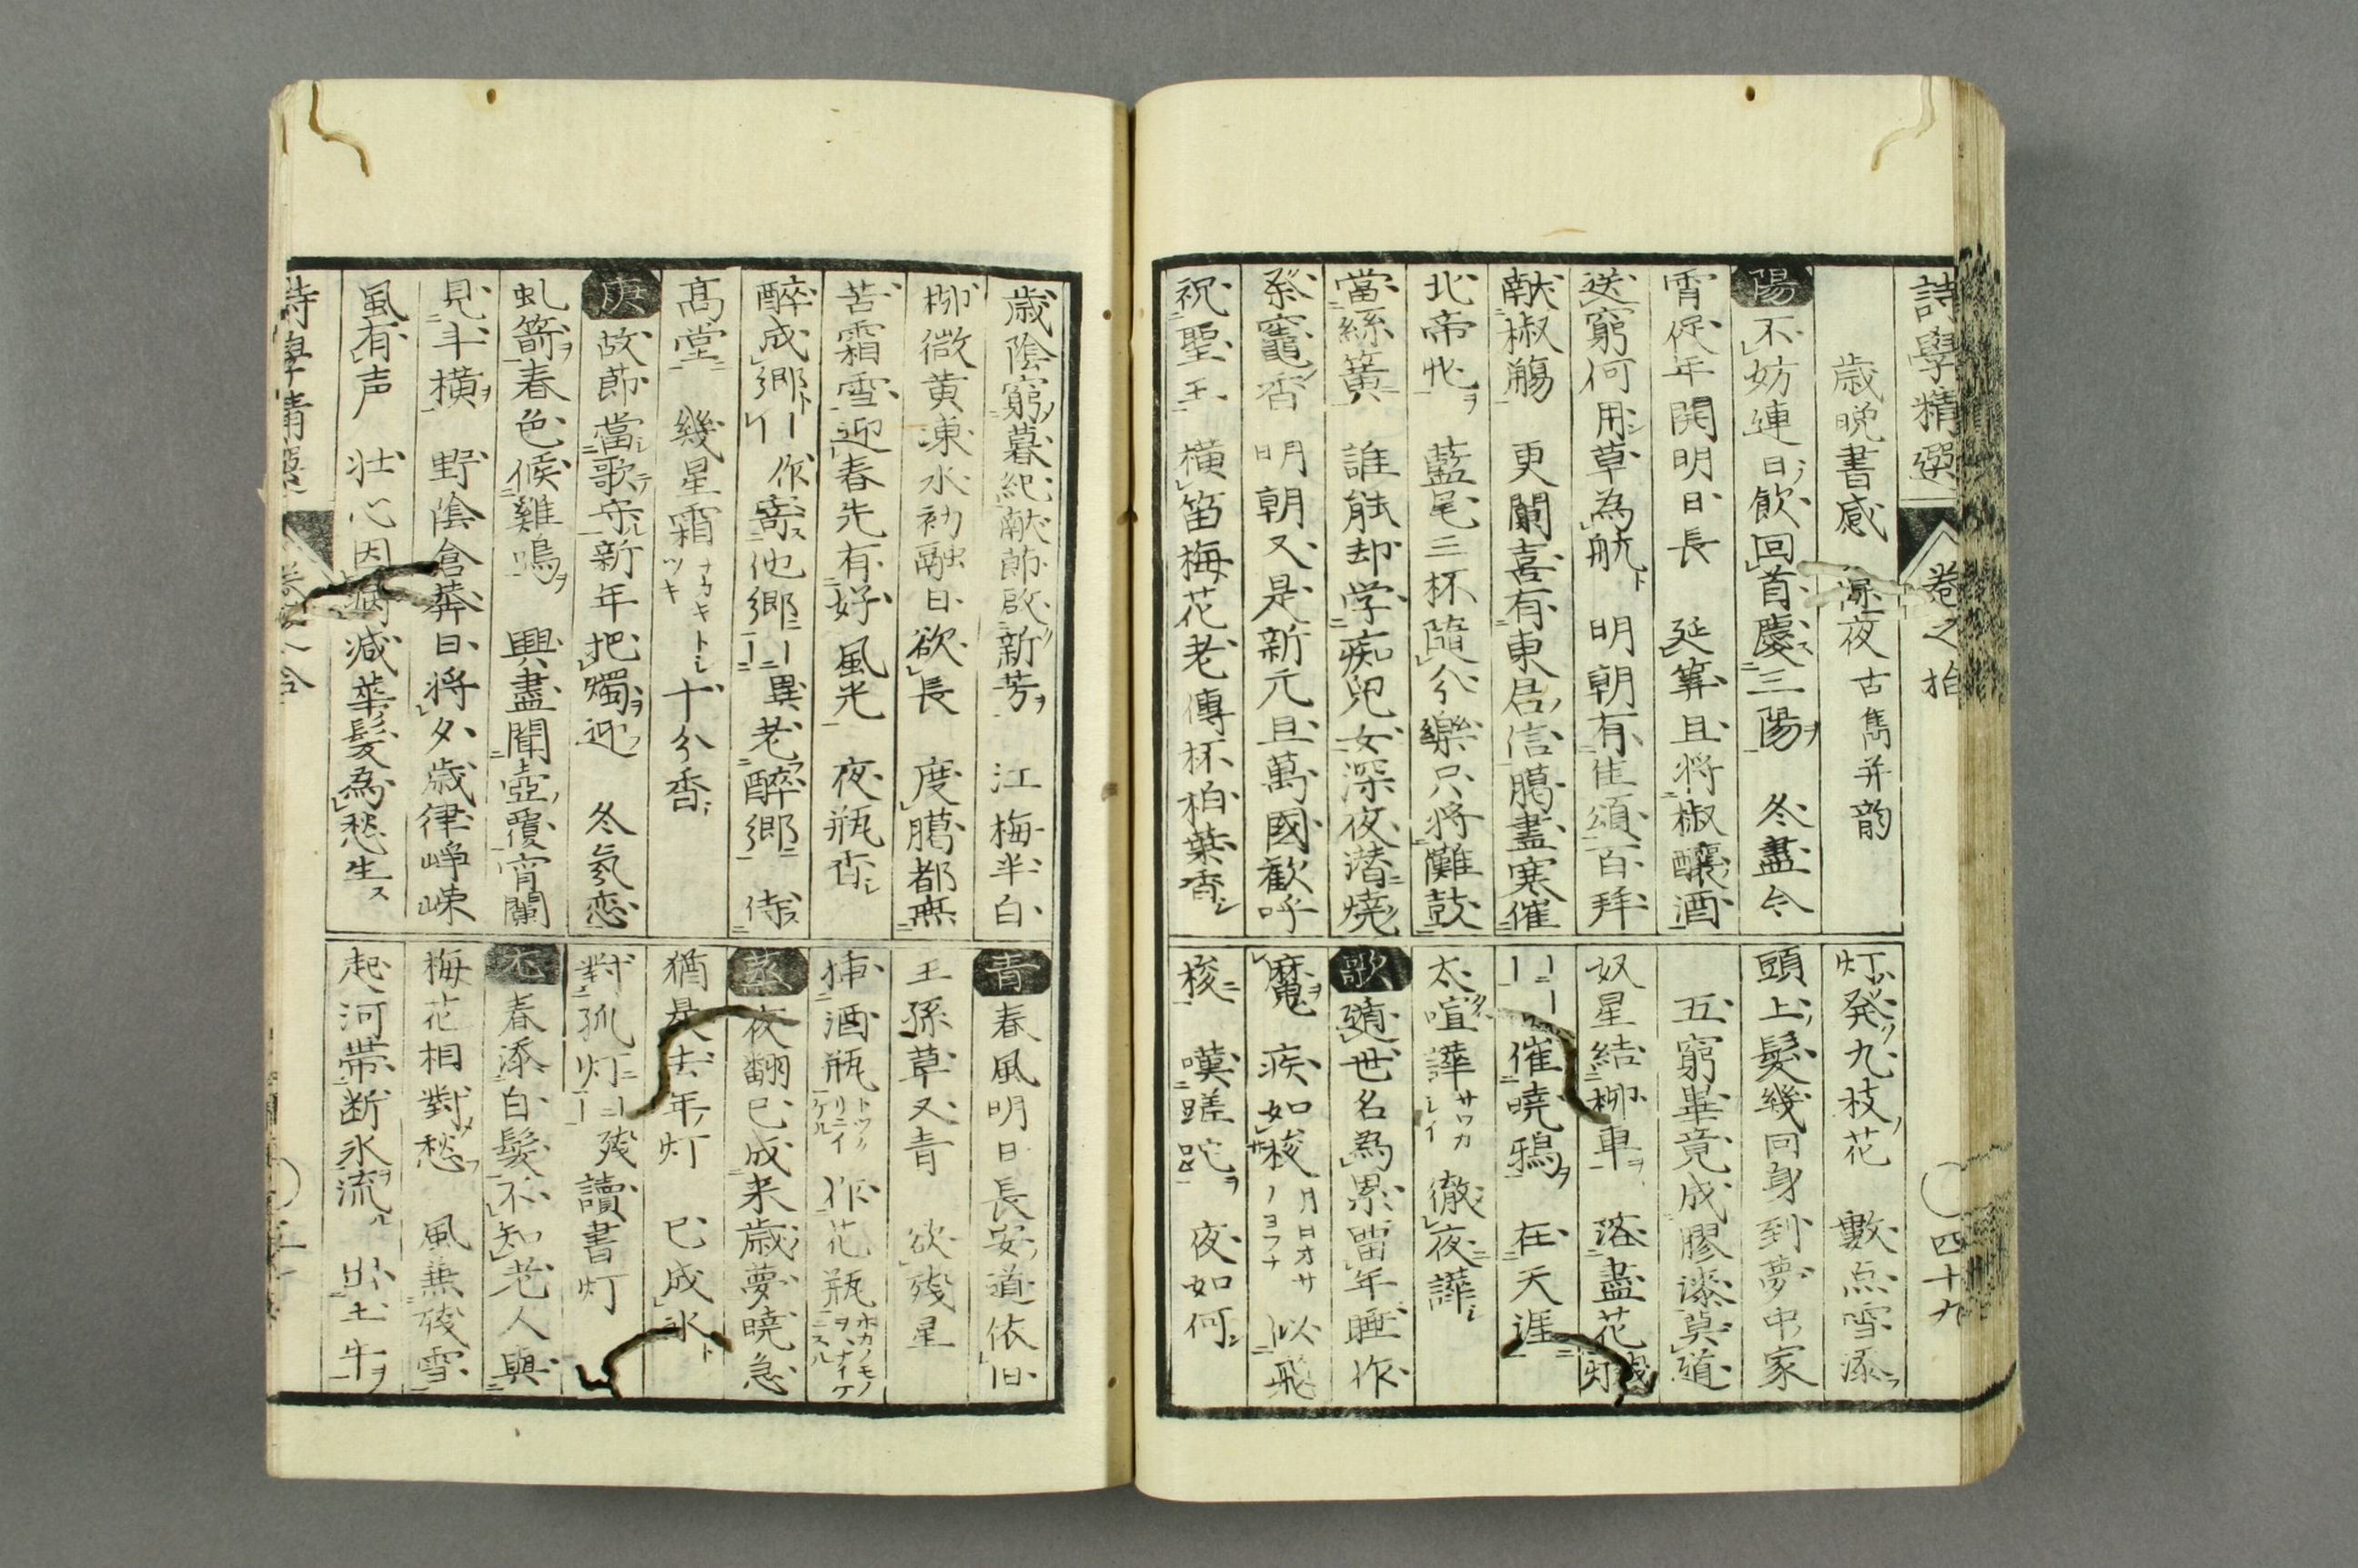 詩學精選 卷之拾 四十九
歳晩書感 深夜 古雋并韵
陽 不妨連日飲 回首慶三陽 冬盡今
宵促 年開明日長 延筭且将椒釀酒
送窮何用草為舩 明朝有隹頌 百拜
献椒觴 更闌喜有東君信 臈盡寒催
北帝化 藍尾三杯隨分樂 只将儺鼓
當絲簧 誰能却学痴児女 深夜潜燒
祭竈香 明朝又是新元旦 萬國歓呼
祝聖王 横笛梅花老 傳杯柏葉香
灯発九枝花 數点雪添
頭上髪 幾回身到夢中家
五窮畢竟成膠漆 莫道
奴星結柳車 落盡花灯
催曉鴉 在天涯
太喧譁 サワカシイ 徹夜譁
歌 遁世名為累 留年睡作
魔 疾如梭 月日オサノヨフナ 似飛
梭 嘆蹉跎 夜如何
歳陰窮暮紀 献節啟新芳 江梅半白
柳微黄 凍水初融日欲長 度臈都無
苦霜雪 迎春先有好風光 夜瓶香
醉成郷 作寄他郷 異老醉郷 侍
髙堂 幾星霜 ナカキトシツキ 十分香
庚 故節當歌守 新年把燭迎 冬氣恋
虬箭 春色候雞鳴 興盡聞壺覆 宵闌
見斗横 野陰倉莽日将夕 歳律崢嶸
風有声 壮心因病减 華髪為愁生
青 春風明日長安道 依旧
王孫草又青 欲残星
挿酒瓶 トツクリニイケル 作花瓶 ホカノモノヲハナイケニスル
蒸 夜翻已成来歳夢 曉急
猶是去年灯 已成氷
對孤灯 残 讀書灯
尤 春添白髪不知老 人與
梅花相對愁 風無残雪
起 河帯断氷流 出土牛